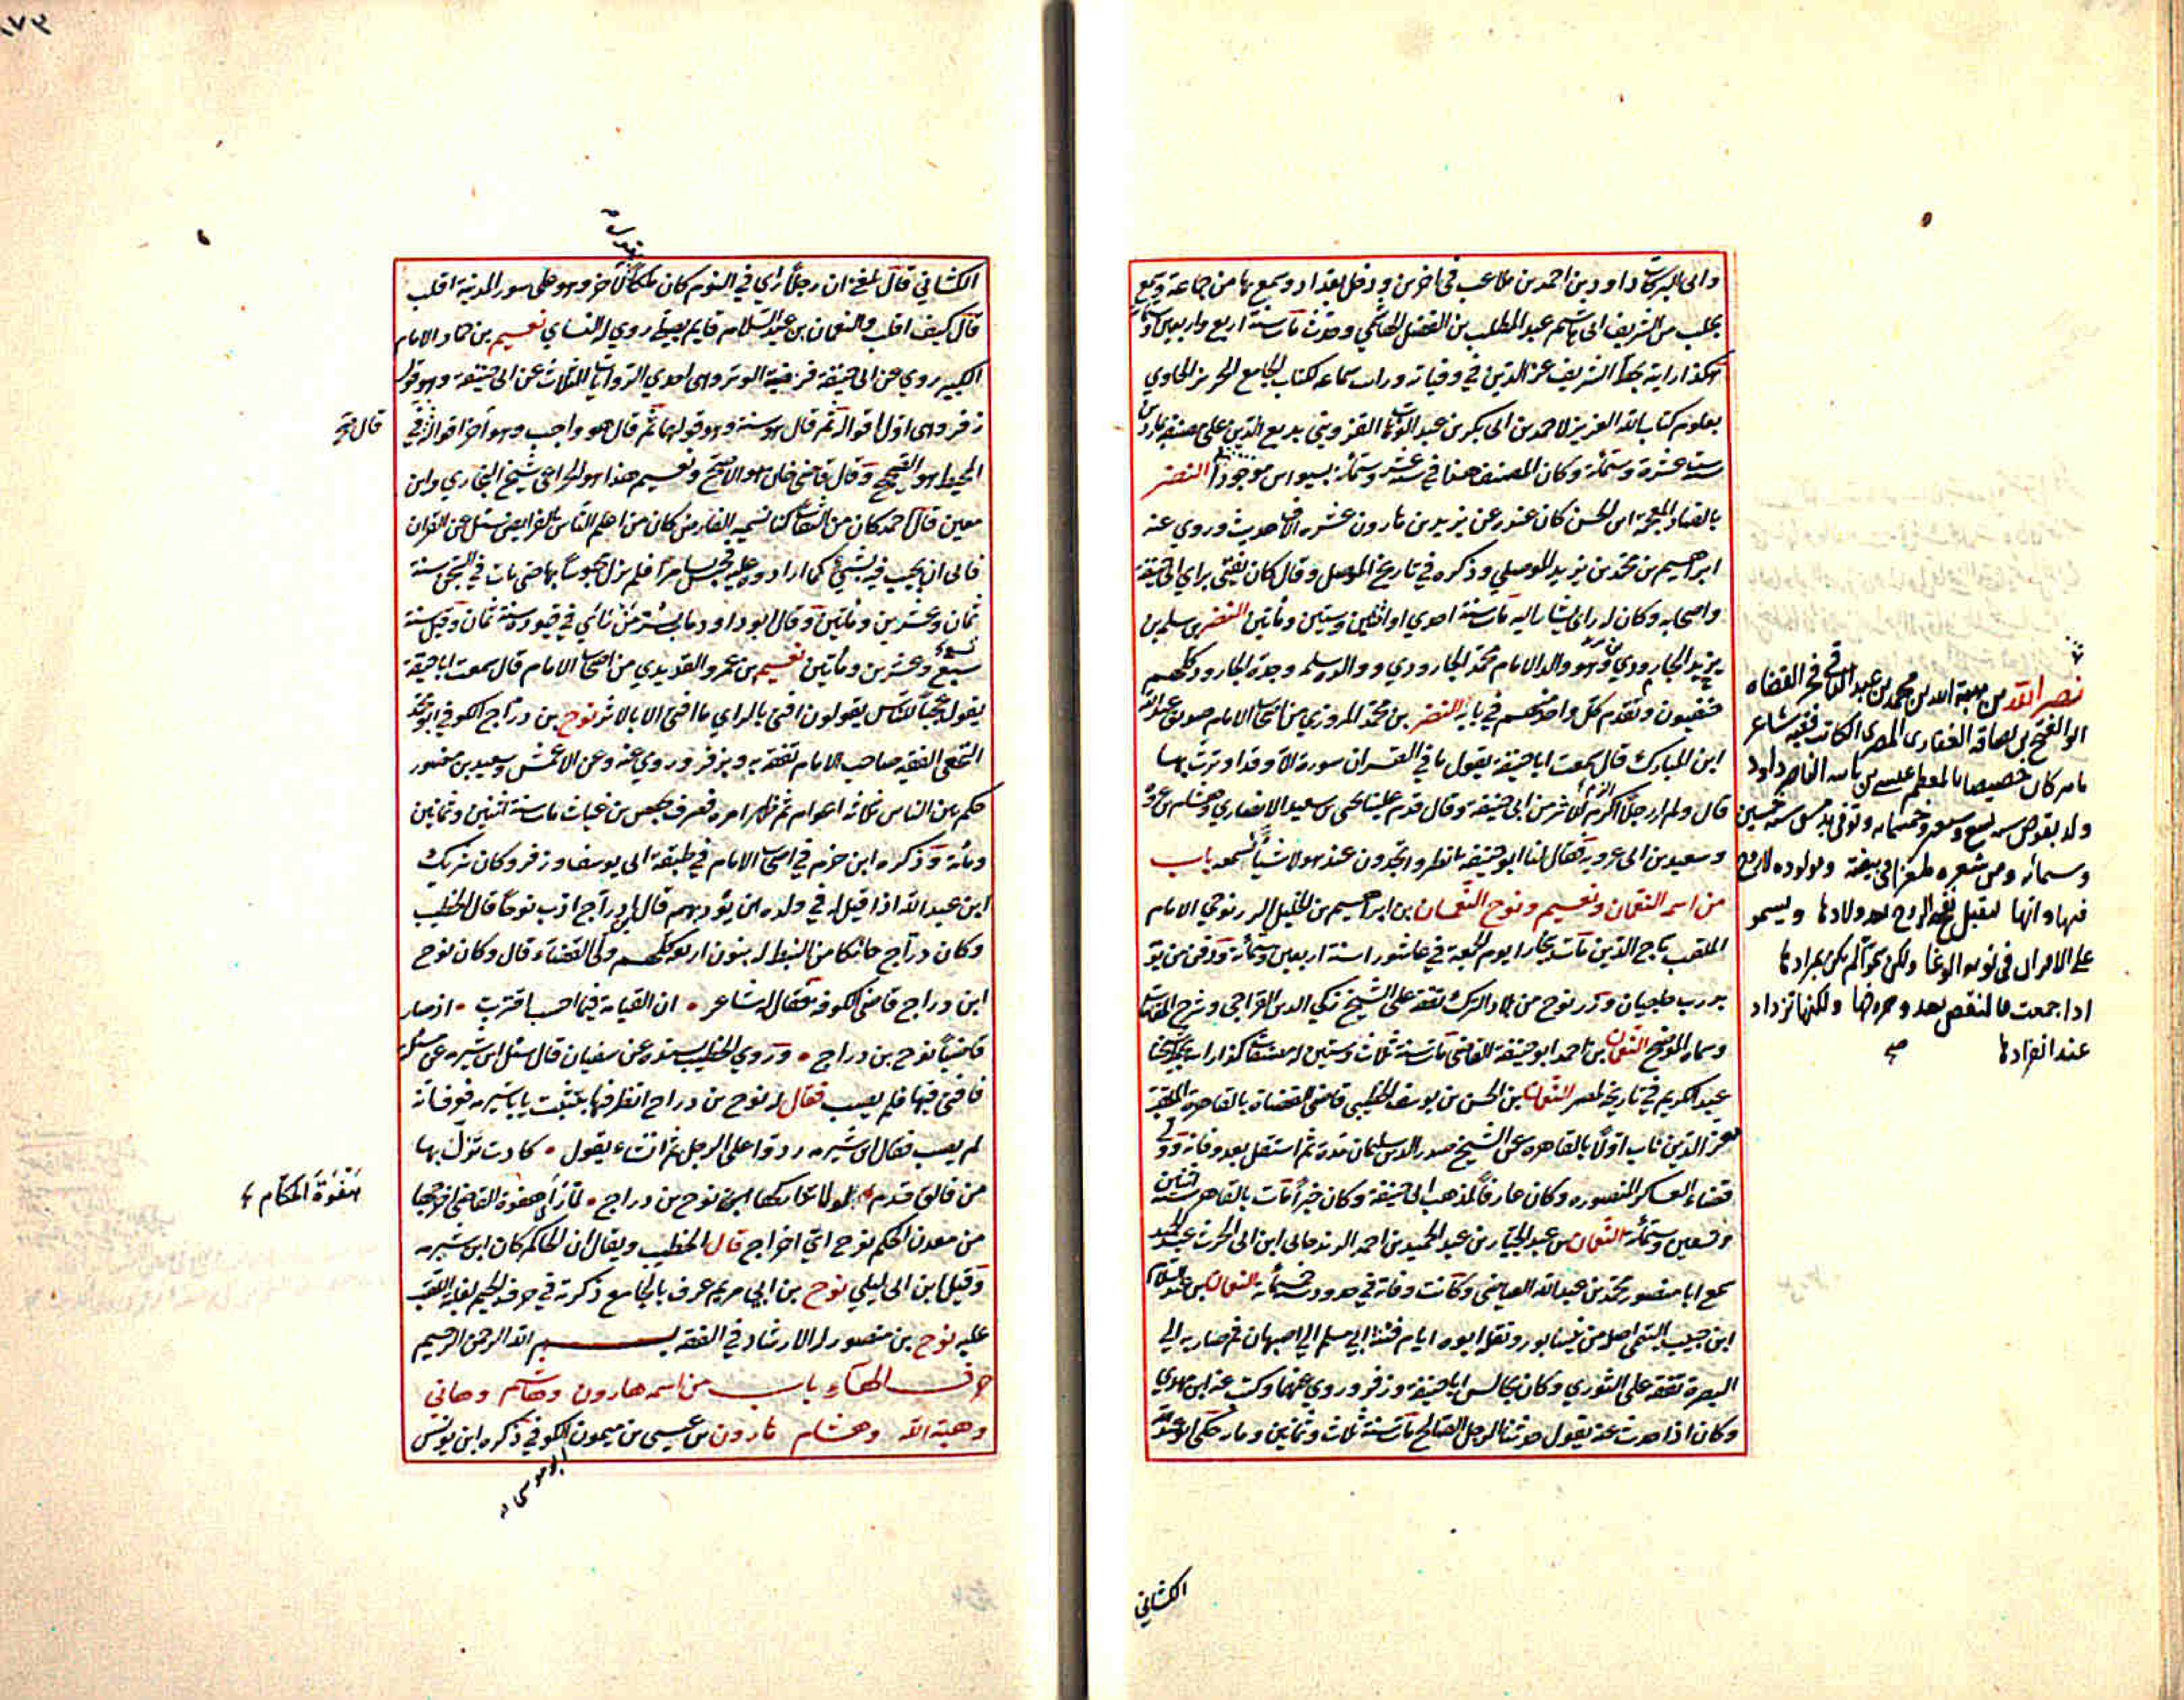 وابى البركات داود بن احمد بن ملاعب فى اخرين ودخل بغداد وسمع بها من جماعة وسمع
بحلب من الشريف ابى هاشم عبد المطلب بن الفضل الهاشمي وحدث مات سنة اربع واربعين وستمائة
هكذا رايته بخط الشريف عز الدين في وفياته ورايت سماعه لكتاب الجامع الحريز الحاوي
بعلوم كتاب الله العزيز لاحمد بن ابى بكر بن عبد الوهاب القزويني بديع الدين على مصنفه
ست عشرة وستمائة وكان المصنف هنا في سنة عشر وستمائة بسيواس موجودا النضر
بالضاد المعجمة ابن الحسن كان عنده عن يزيد بن هارون عشرة الاف حديث وروي عنه
ابراهيم بن محمد بن يزيد الموصلي وذكره في تاريخ الموصل وقال كان يفتي براي ابى حنيفة
واصحابه وكان له راي يشار اليه مات سنة احدي او اثنتين وستين ومأتين النضر بن سلمة بن
يزيد الجارودي وهو والد الامام محمد الجارودي ووالده سلمه وجده الجارود كلهم
حنفيون وتقدم كل واحد منهم في بابه النضر بن محمد المروزي من اصحاب الامام صديق عبد الله
ابن المبارك قال سمعت ابا حنيفة يقول ما في القران سورة الا وقد اوترت بها
قال ولم ار رجلا الزم للاثر من ابى حنيفة وقال قدم علينا يحيى بن سعيد الانصاري وهشام بن عروة
وسعيد بن ابى عروبة فقال لنا ابو حنيفة انظروا اتجدون عند هولاء شيئا نسمعه باب
من اسمه النعمان ونعيم ونوح النعمان بن ابراهيم بن الخليل الزرنوجي الامام
الملقب تاج الدين مات ببخارا يوم الجمعة في عاشوراء سنة اربعين وستمائة ودفن من يومه
بدرب حاجبان وزرنوج من بلاد الترك تفقه على الشيخ زكي الدين القراحي وشرح المقامات
وسماه الموضح النعمان بن احمد ابو حنيفة القاضي مات سنة ثلاث وستين له مصنفات كذا رايت بخط شيخنا
عبد الكريم في تاريخ لمصر النعمان بن الحسن بن يوسف الخطيبى قاضى القضاة بالقاهرة الملقب
معز الدين ناب اولا بالقاهرة عن الشيخ صدر الدين سليمان مدة ثم استقل بعد وفاته وولي
قضاء العساكر المنصوره وكان عارفا بمذهب ابى حنيفة وكان خيرا مات بالقاهرة سنة اثنتين
وتسعين وستمائة النعمان بن عبد الجبار بن عبد الحميد بن احمد ابن ابى الحرث عبد الحميد
سمع ابا منصور محمد بن عبد الله العياضى وكانت وفاته في حدود سنة خمسمائة النعمان بن عبد السلام
ابن حبيب التيمى اصله من نيسابور ونقله ابوه ايام فتنة ابى مسلم الى اصبهان ثم صار به الى
البصرة تفقه على الثوري وكان يجالس ابا حنيفة وزفر وروي عنهما وكتب عنه ابن مهدي
وكان اذا حدث عنه يقول حدثنا الرجل الصالح مات سنة ثلاث وثمانين ومائة حكى ابو عبد الله
نصر الله بن هبة الله بن محمد بن عبد الباقى فخر القضاه
ابو الفتح بن بصاقه الغفارى المصرى الكاتب فقيه شاعر
ماهر كان خصيصا بالمعظم عيسى بن بابنه الناصر داود
ولد بقوص سنه تسع وسبعين وخمسمايه وتوفى بدمشق سنة خمسين
وستمائه ومن شعره ملغزا فى بيضة ومولوده لا روح
فيها وانها لتقبل نفخ الروح بعد ولادها وتسمو
على الاقران فى حومة الوغا ولكن سموا لم يكن بمرادها
اذا جمعت فالنقص يعدو حروفها ولكنها تزداد
عند انفرادها
صح
الكشاني
١٧٣
الكشاني قال بلغني ان رجلا راي في النوم كان ملكا قال لآخر وهو على سور المدينة اقلب
قال كيف اقلب والنعمان بن عبد السلام قايم يصلي روي له النساي نعيم بن حماد الامام
الكبير روي عن ابى حنيفة فرضية الوتر وهى احدي الروايات الثلاث عن ابى حنيفة وهو قول
زفر وهى اول اقواله ثم قال هو سنة وهو قولهما ثم قال هو واجب وهو آخر اقواله في
قال في
المحيط هو الصحيح وقال قاضى خان هو الاصح ونعيم هذا هو الخزاعى شيخ البخاري وابن
معين قال احمد كان من الثقات كنا نسميه الفارض كان من اعلم الناس بالفرايض سئل عن القران
فابى ان يجيب فيه بشيئ كما ارادوه عليه فحبس بسامرا فلم يزل محبوسا بها حتى مات في السجن سنة
ثمان وعشرين ومأتين وقال ابو داود مات سنة ثمان وقيل سنة
تسع وعشرين ومأتين نعيم بن عمرو القديدي من اصحاب الامام قال سمعت ابا حنيفة
يقول عجبا للناس يقولون افتى بالراي ما افتى الا بالاثر نوح بن دراج الكوفي ابو محمد
النخعى الفقيه صاحب الامام تفقه به وبزفر وروي عنه وعن الاعمش وسعيد بن منصور
حكم بين الناس ثلاثة اعوام ثم ظهر امره فصرف بحفص بن غياث مات سنة اثنتين وثمانين
ومأة وذكره ابن حزم في اصحاب الامام في طبقة ابى يوسف وزفر وكان شريك
ابن عبد الله اذا قيل له في ولده ان يؤدبهم قال ادراج ادب نوحا قال الخطيب
وكان دراج حائكا من النبط له بنون اربعة كلهم ولى القضاء قال وكان نوح
ابن دراج قاضى الكوفة فقال له شاعر ان القيامة فيما احسب اقتربت اذ صار
قاضينا نوح بن دراج وروي الخطيب بسنده عن سفيان قال سئل ابن شبرمة عن مسئلة
فافتى فيها فلم يصب فقال له نوح بن دراج انظر فيها بتثبت يا ابن شبرمه فعرف انه
لم يصب فقال ابن شبرمه ردوا على الرجل ثم انشاء يقول كادت تزل بها
من حالق قدم لولا تداركها نوح بن دراج لما راى هفوة القاضى اخرجها
هفوة الحكام
من معدن الحكم نوح اي اخراج قال الخطيب ويقال ان الحاكم كان ابن شبرمه
وقيل ابن ابى ليلى نوح بن ابى مريم عرف بالجامع ذكرته في حرف الجيم لغلبة اللقب
عليه نوح بن منصور له الارشاد في الفقه بسم الله الرحمن الرحيم
حرف الهاء باب من اسمه هارون وهاشم وهانى
وهبة الله وهشام هارون بن عيسى بن ميمون الكوفي ذكره ابن يونس
ابو موسى